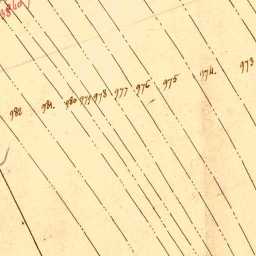 982 981 980 979 978 977 976 975 974 973